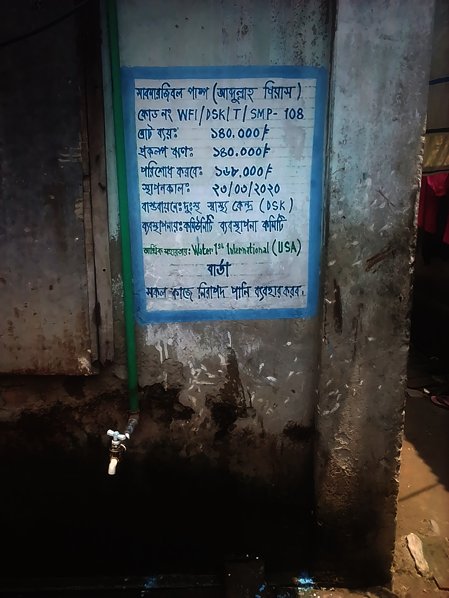 সাবমারজিবল পাম্প (আব্দুল্লাহ পিয়াস)
কোড নং WFI/DSK/T/SMP-108
মোট ব্যয়ঃ ১৪০.০০০/
প্রকল্প ঋণঃ ১৪০.০০০/
পরিশোধ করবেঃ ১৬৮.০০০/
স্থাপনকালঃ ২০/০০/২০২০
বাস্তবায়নেঃ দুঃস্থ স্বাস্থ্য কেন্দ্র (DSK)
ব্যবস্থাপনায়ঃ কমিউনিটি ব্যবস্থাপনা কমিটি
আর্থিক সহায়তায়ঃ Water 1st International (USA)
বার্তা
সকল কাজে নিরাপদ পানি ব্যবহার করব।